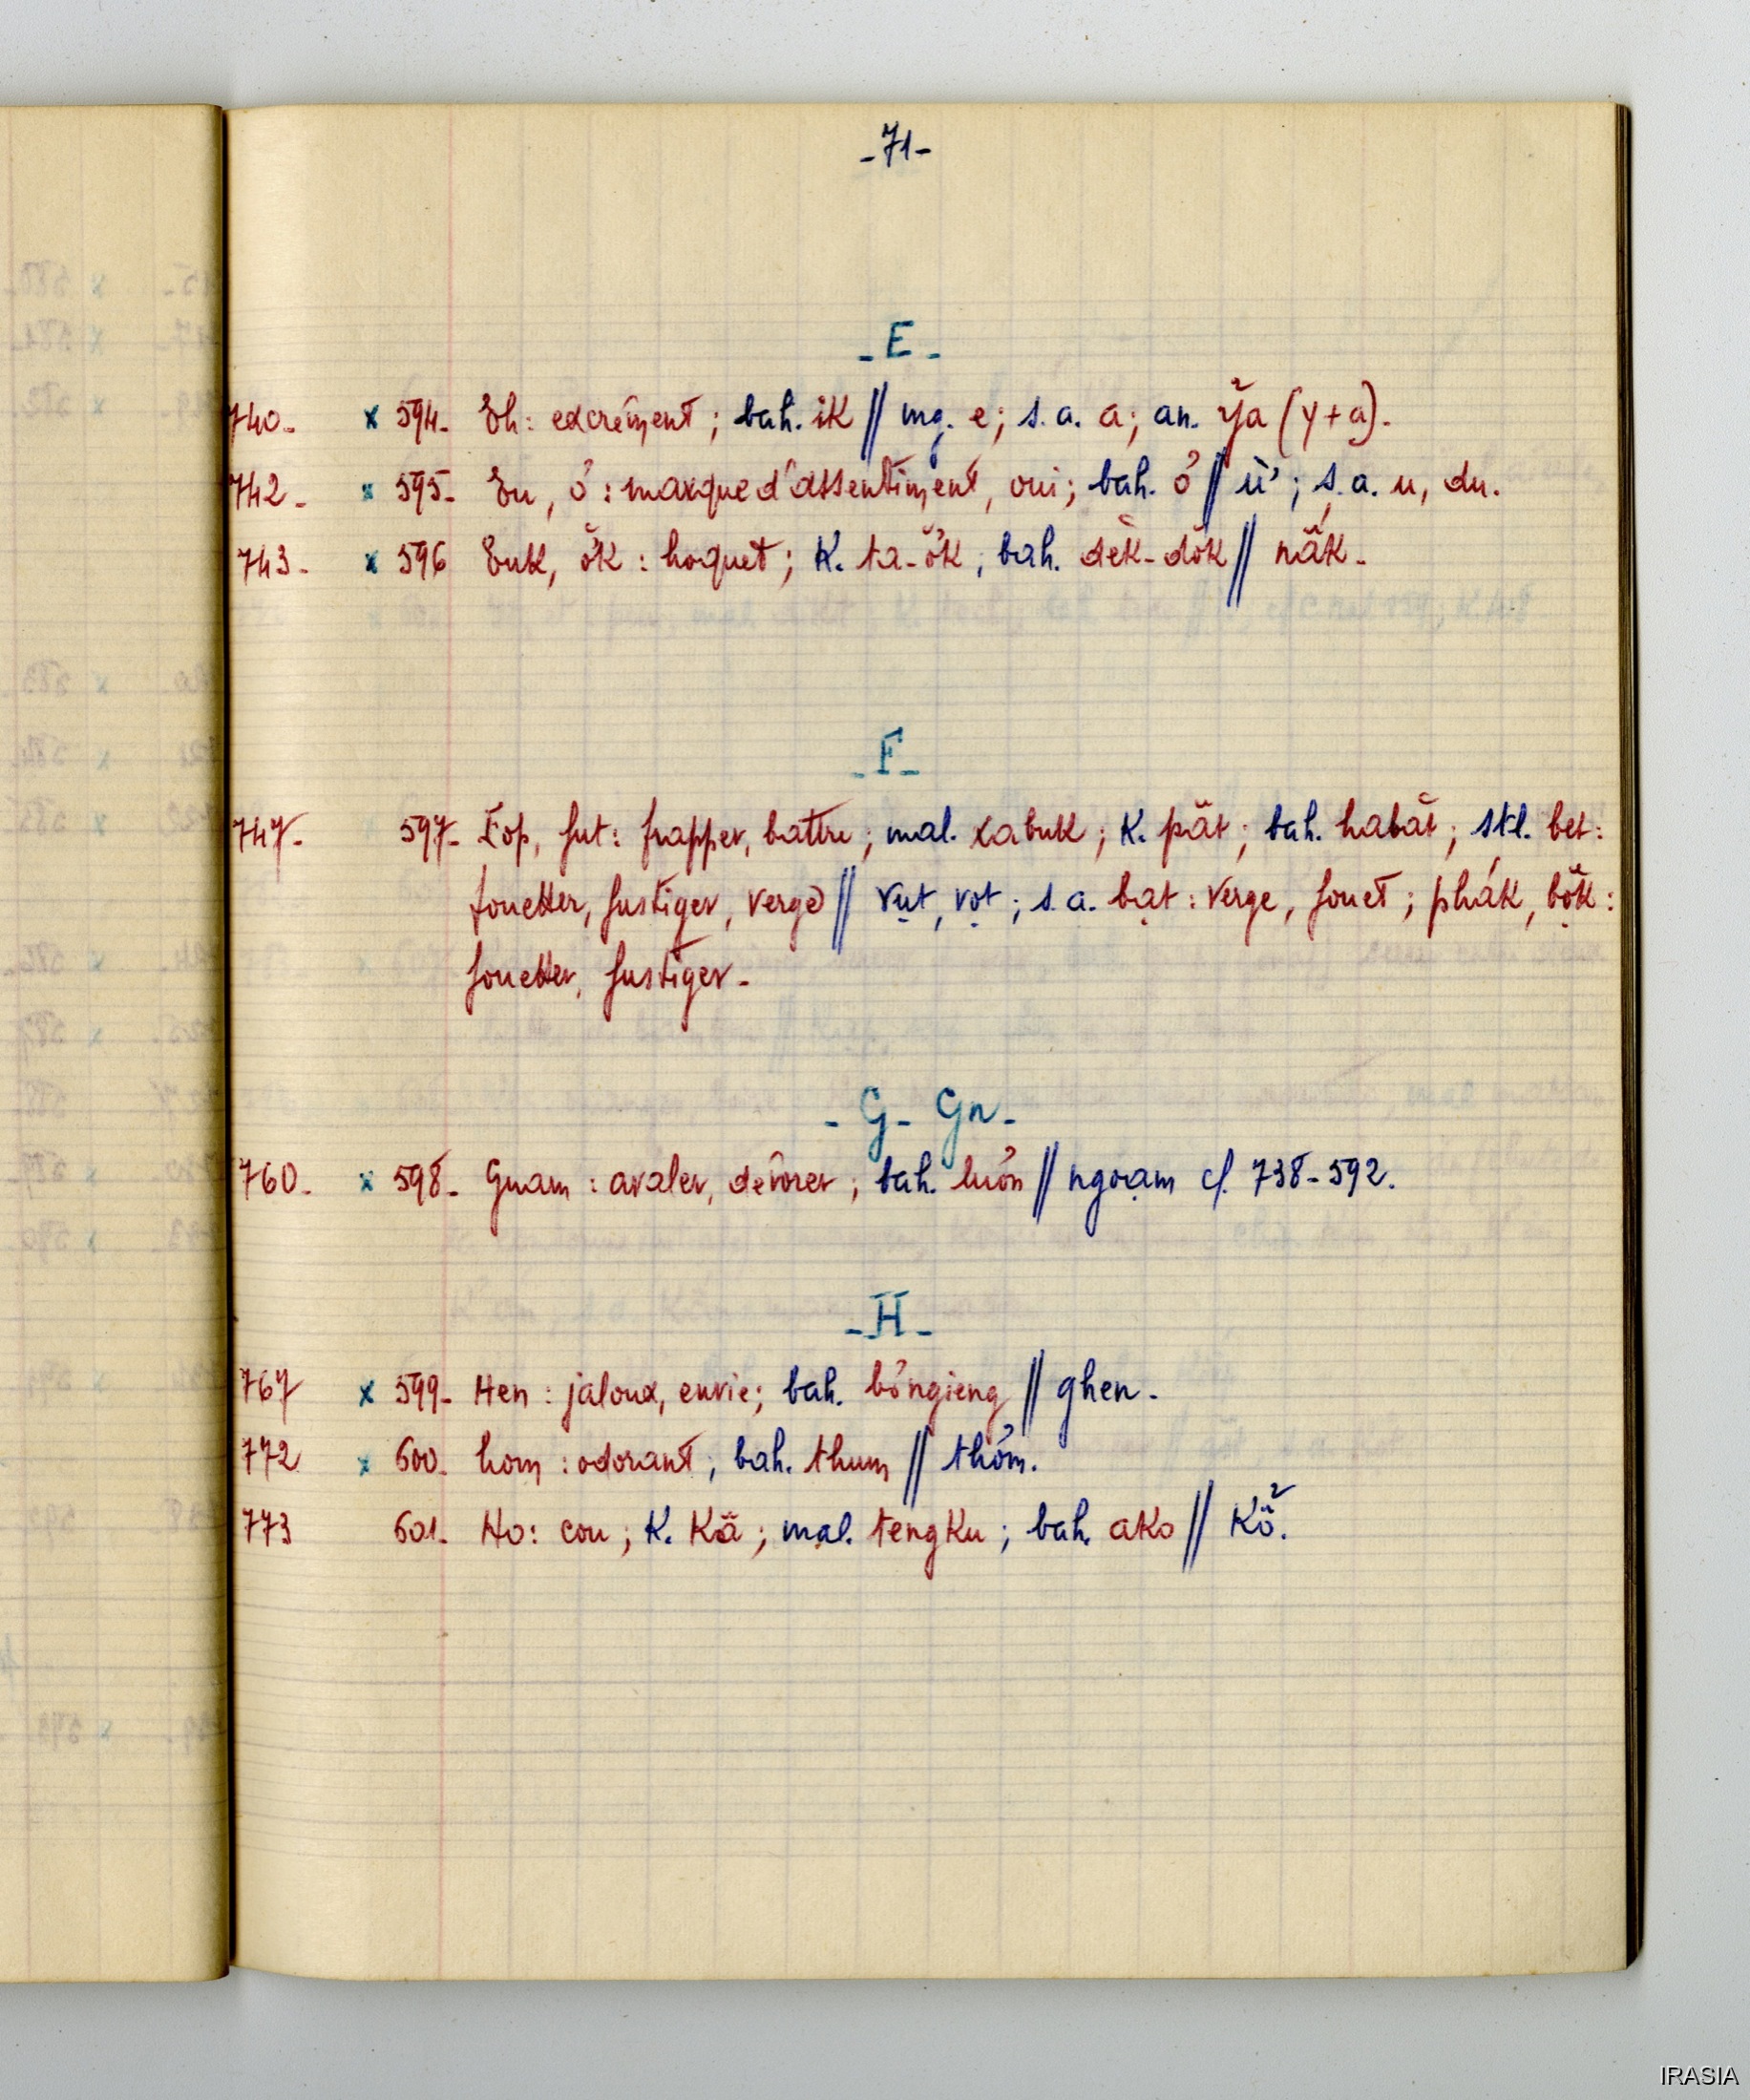 -71-
-E-
740- x 594- Eh: excrément; bah. ik // mg. e; s.a. a; an. ỷa (y+a).
742- x 595- Eu, ơ: marque d'assentiment, oui; bah. ơ // ừ; s.a. u, du.
743- x 596 Euk, ơ̆k: hoquet; K. ta-ơ̆k; bah. dĕk-dŏk // nấk-
-F-
747- 597- Fop, fut: frapper, battre; mal. xabuk; K. păt; bah. habăt; stl. bet:
fouetter, fustiger, verge // vụt, vọt; s.a. bạt: verge, fouet; phák, bộk:
fouetter, fustiger-
-G- Gn-
760- x 598- Gnam: avaler, dévorer; bah. luơn // ngoạm cf. 738-592.
-H-
767 x 599- Hen: jaloux, envie; bah. bơngieng // ghen-
772 x 600- hom: odorant; bah. thum // thơm.
773 601- Ho: cou; K. Kă; mal. tengku; bah. ako // Kổ.
IRASIA